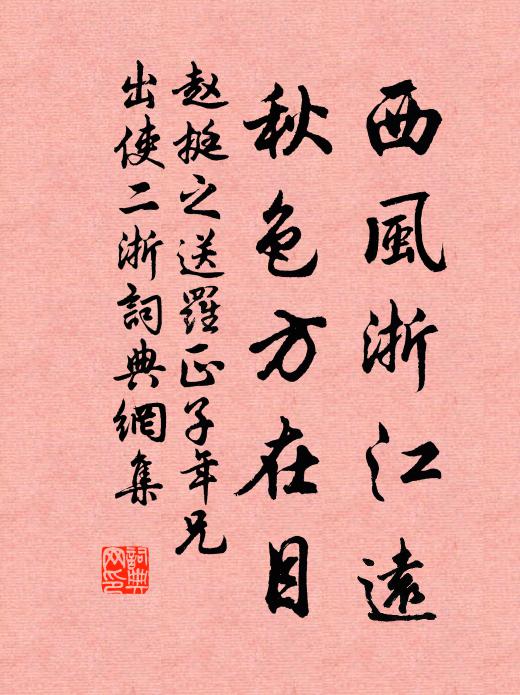 西風浙江遠
秋色方在目
赵挺之送羅正子年兄
出使二浙詞典網集
詞典網印